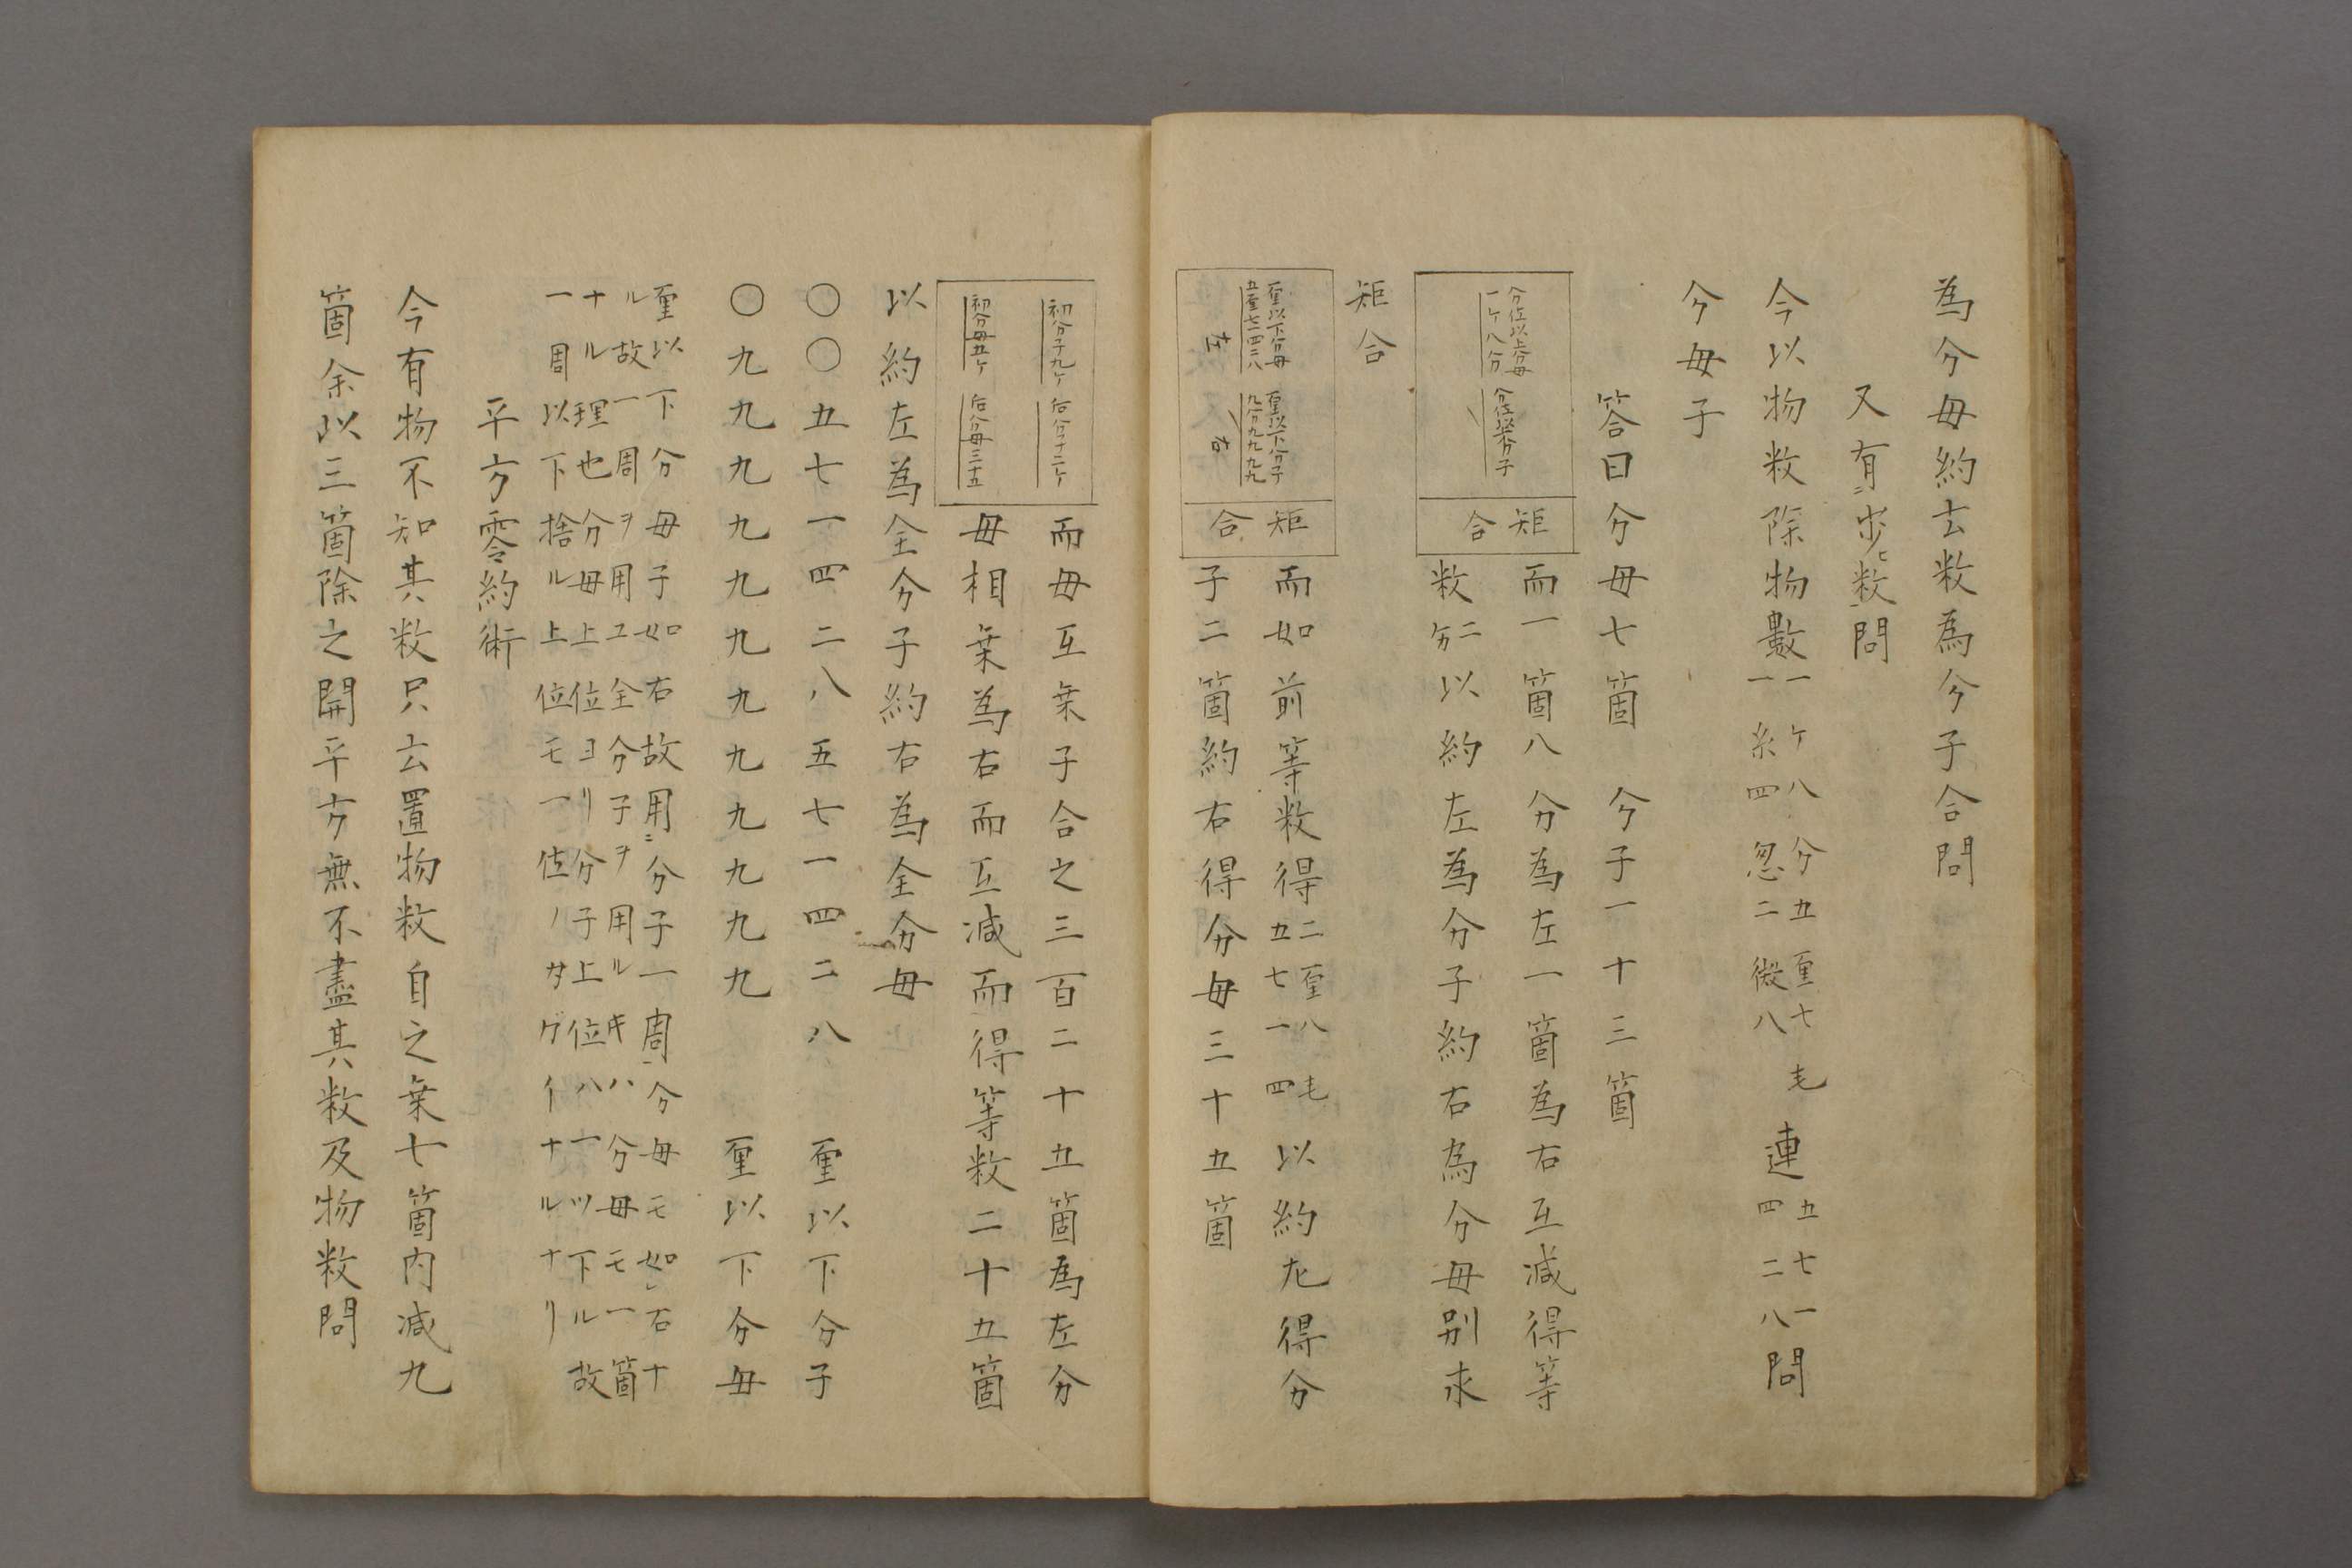 為分母約去数為分子合問
又有少数問
今以物数除物數
一ケ八分五厘七毛
一糸四忽二微八
連
五七一
四二八
問
分母子
答曰分母七箇 分子一十三箇
分位以上分母
一ケ八分
分位以上分子
一
矩合
而一箇八分為左一箇為右互減得等
数二分以約左為分子約右為分母別求
矩合
厘以下分母
五厘七一四二八
左
厘以下分子
九分九九九九
右
矩合
而如前等数得
二厘八毛
五七一四
以約左得分
子二箇約右得分母三十五箇
初分子九ケ 后分子二ケ
初分母五ケ 后分母三十五
而母互乗子合之三百二十五箇為左分
母相乗為右而互減而得等数二十五箇
以約左為全分子約右為全分母
〇〇五七一四二八五七一四二八 厘以下分子
〇九九九九九九九九九九九 厘以下分母
厘以下分母子如右故用ニ分子一周一分母モ如レ右十
ル故一周ヲ用ユ全分子ヲ用ルキハ分母モ一箇
ナル理也分母上位ヨリ分子上位ハ一ツ下ル故
一周以下捨ル上位モ一位ノサグイナルナリ
平方零約術
今有物不知其数只云置物数自之乗七箇内減九
箇余以三箇除之開平方無不盡其数及物数問